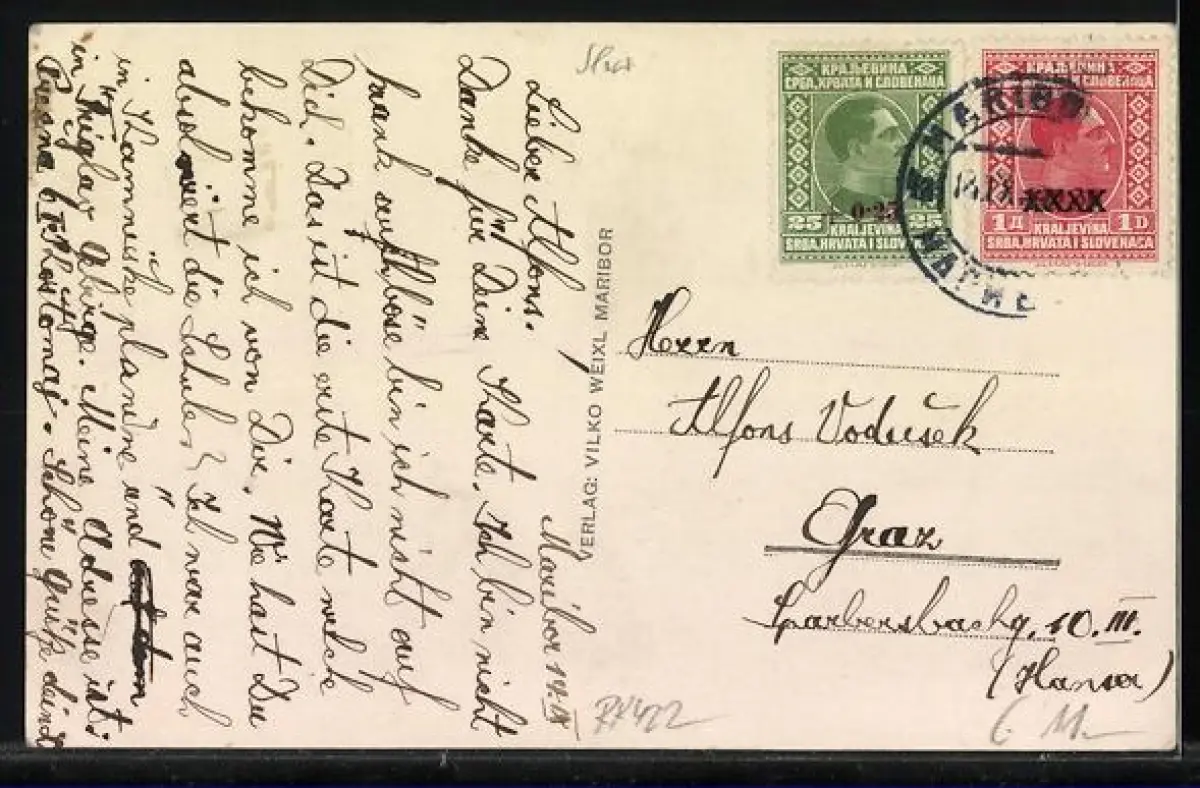 Maribor 14.IX
Lieber Alfons.
Danke für Deine Karte. Ich bin nicht
krank auch böse bin ich nicht auf
Dich. Das ist die erste Karte welche
bekomme ich von Dir. Wo hast Du
absolviert die Schule? Ich war auch
in Kamniške planine und
in Triglav Gebirge. Meine Adresse ist:
Schöne Grüße
VERLAG: VILKO WEIXL MARIBOR
КРАЉЕВИНА
СРБА, ХРВАТА И СЛОВЕНАЦА
0·25
25 25
KRALJEVINA
SRBA, HRVATA I SLOVENACA
КРАЉЕВИНА
СРБА, ХРВАТА И СЛОВЕНАЦА
XXXX
1 Д 1 D
KRALJEVINA
SRBA, HRVATA I SLOVENACA
MARIBO
14.IX
Herrn
Alfons Vodušek
Graz
Sparbersbachg. 10. III.
(Hanser)